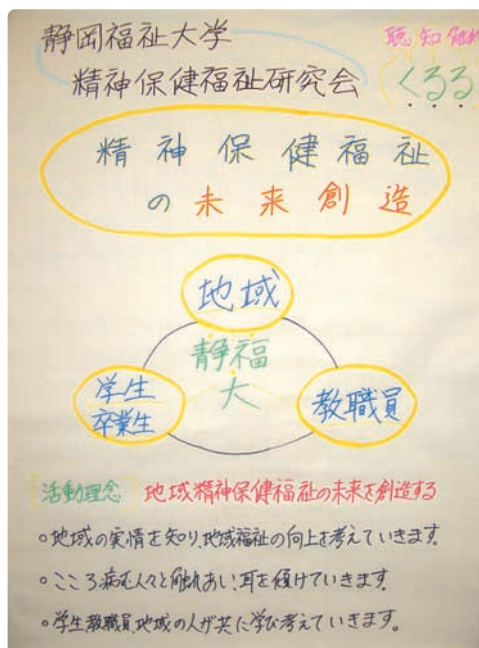 静岡福祉大学
精神保健福祉研究会
聴 知 触れ
くるる
精神保健福祉
の未来創造
地域
静福
大
学生
卒業生
教職員
活動理念 地域精神保健福祉の未来を創造する
○地域の実情を知り、地域福祉の向上を考えていきます。
○こころ病む人々と触れあい、耳を傾けていきます。
○学生教職員、地域の人が共に学び考えていきます。